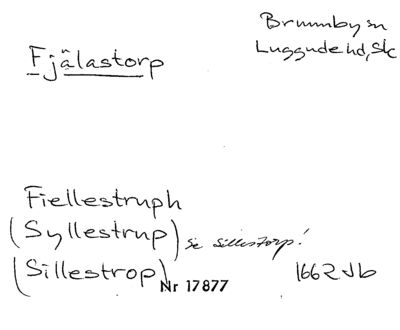 Brunnby sn
Fjälastorp
Luggude hd, Sk
Fiellestruph
(Syllestrup) se Sillestorp!
(Sillestrop) Nr 17877
1662 Jb